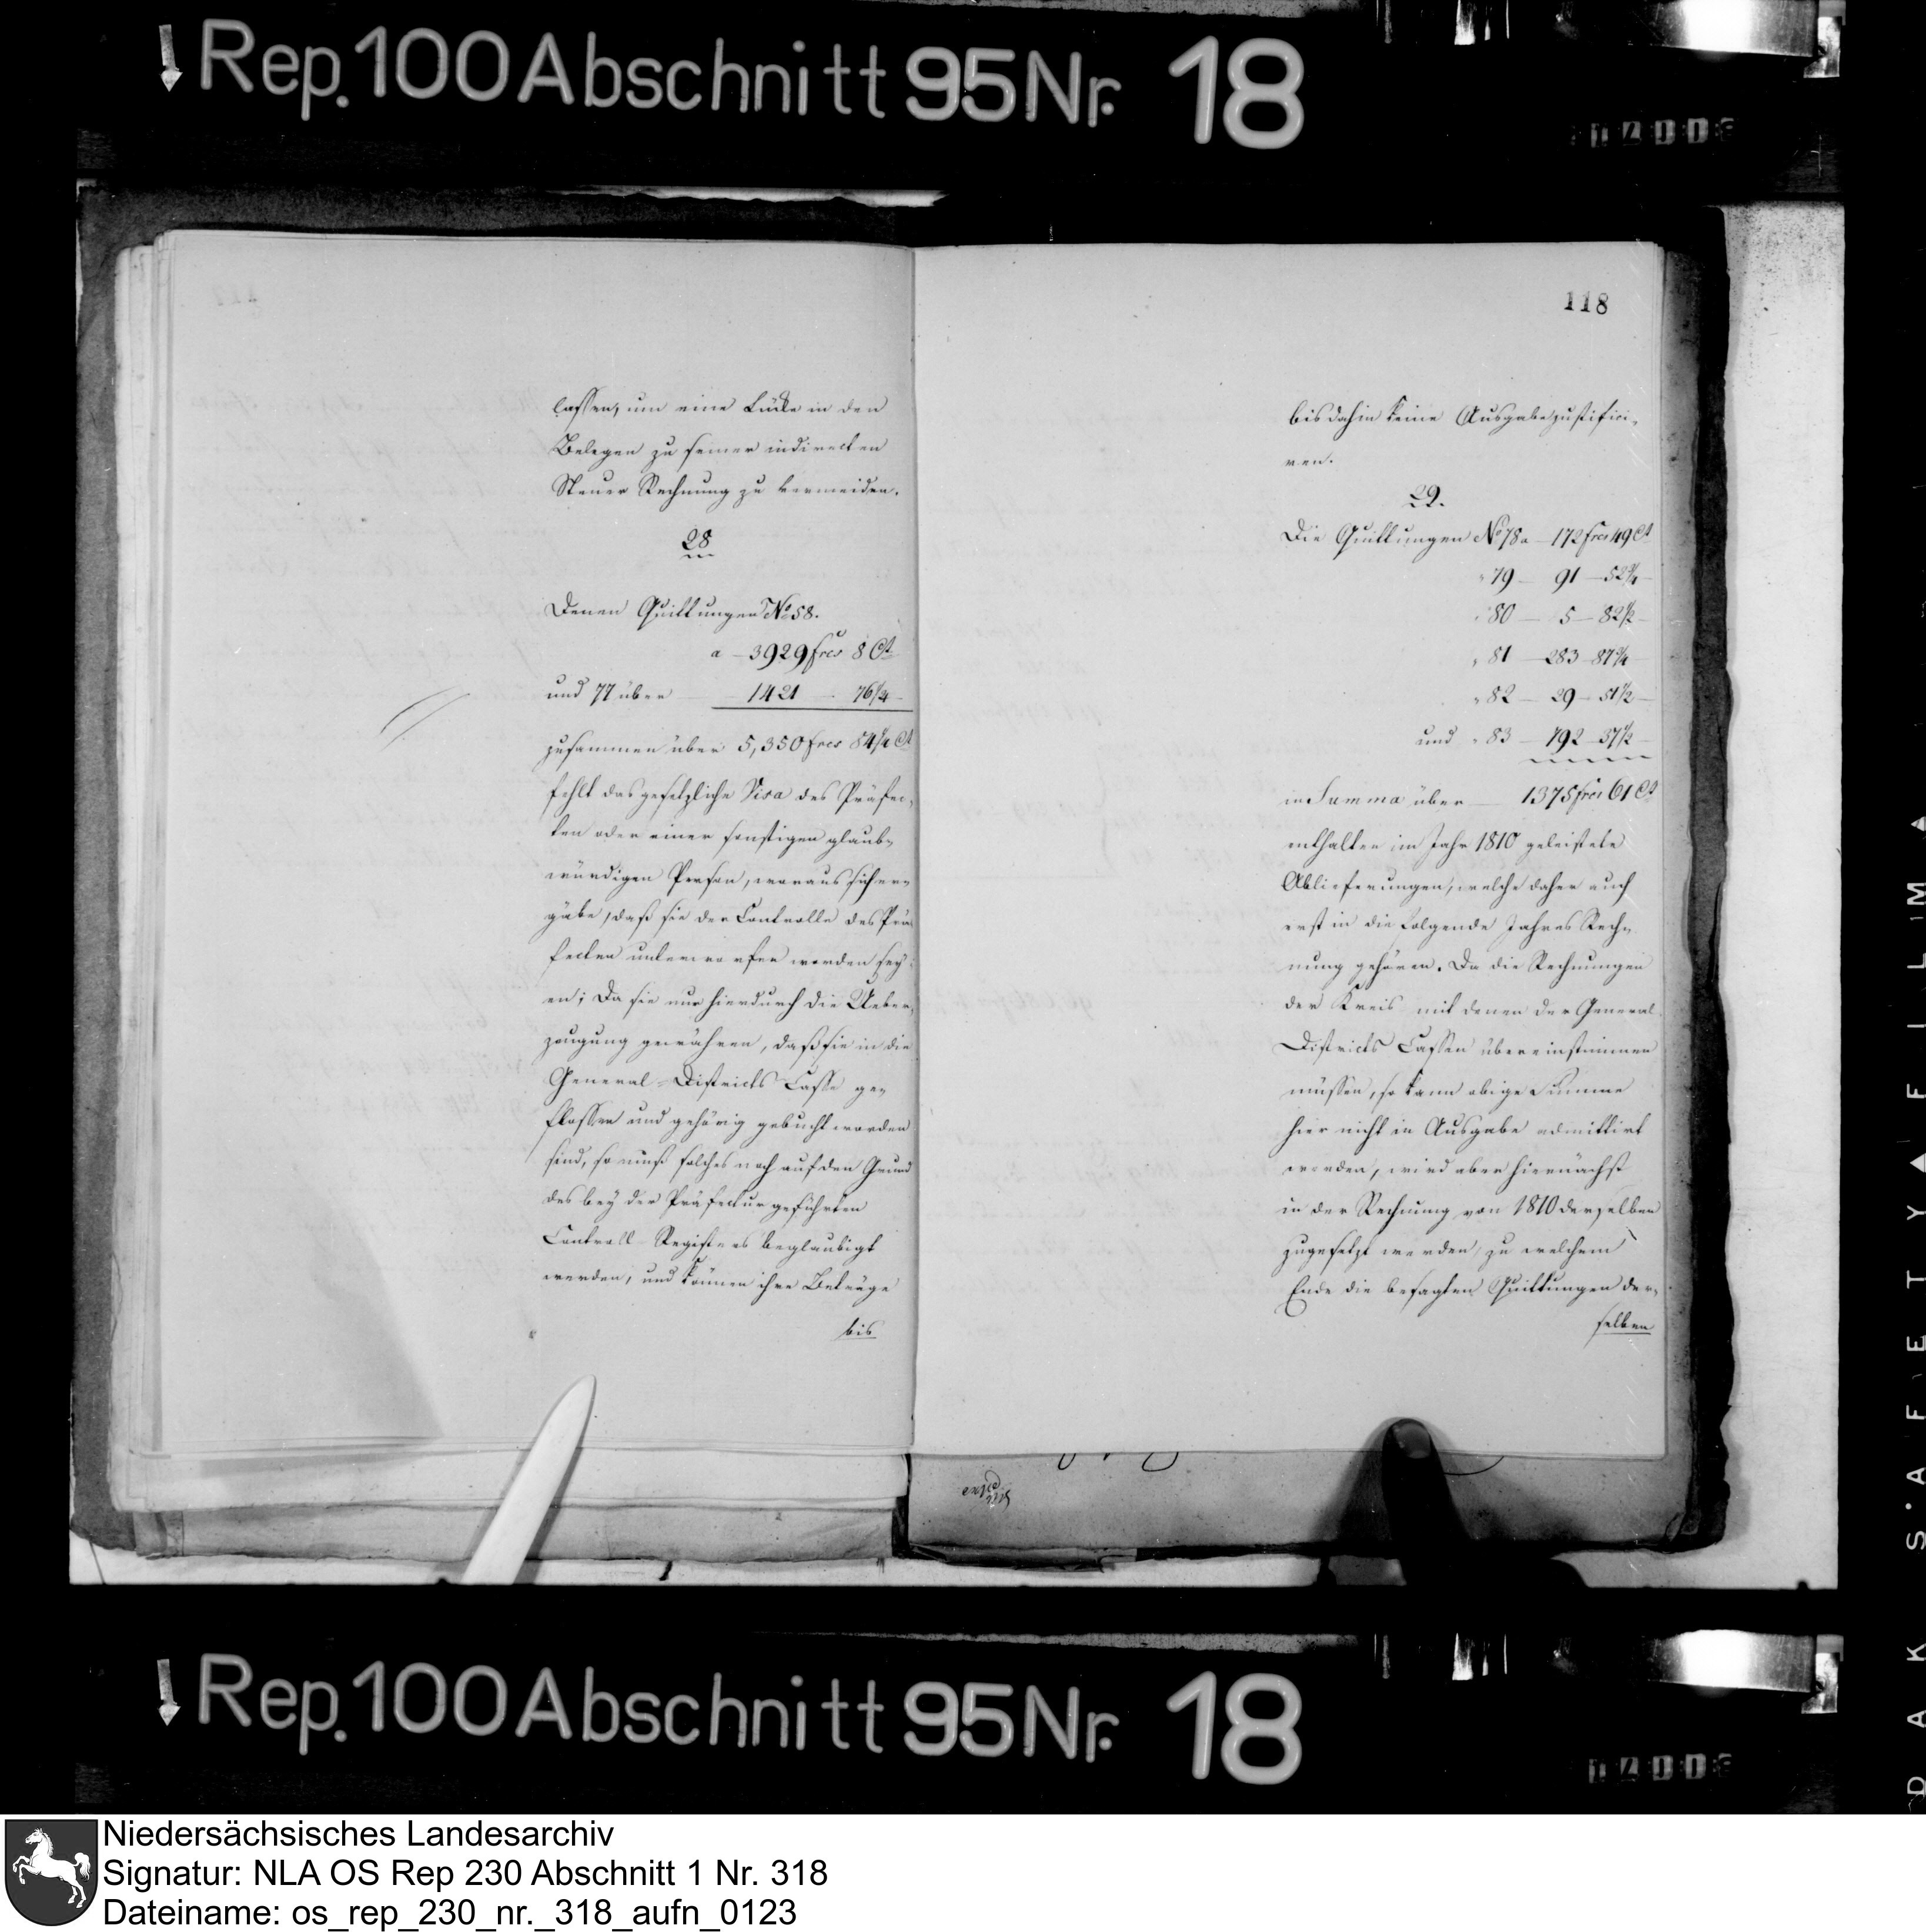 Rep. 100 Abschnitt 95 Nr. 18
lassen, um eine Lücke in den
Belegen zu seiner indirecten
Steuer Rechnung zu vermeiden.
28
Denen Quittungen No 58.
a - 3929 frcs 8 Ct
und 77 über 1421 - 76 1/4
zusammen über 5,350 frcs 84 1/4 Ct
fehlt das gesetzliche Visa des Präfec-
ten oder einer sonstigen glaub-
würdigen Person, woraus sich er-
gäbe, daß sie der Controlle des Prä-
fecten unterworfen worden sey-
en; Da sie nur hierdurch die Ueber-
zeugung gewähren, daß sie in die
General-Districts Casse ge-
flossen und gehörig gebucht worden
sind, so muß solches noch auf den Grund
des bey der Präfectur geführten
Controll-Registers beglaubigt
werden, und können ihre Beträge
bis
118
bis dahin keine Ausgabe justifici-
ren.
29.
Die Quittungen No 78 a - 172 frcs 49 Ct
" 79 - 91 - 52 3/4
" 80 - 5 - 82 1/2
" 81 - 283 - 87 3/4
" 82 - 29 - 51 1/2
und " 83 - 792 - 37 1/2
in Summa über - 1375 frcs 61 Ct
enthalten im Jahr 1810 geleistete
Ablieferungen, welche daher auch
erst in die folgende Jahres Rech-
nung gehören. Da die Rechnungen
der Kreis mit denen der General
Districts Cassen übereinstimmen
müssen, so kann obige Summe
hier nicht in Ausgabe admittirt
werden, wird aber hiernächst
in der Rechnung von 1810 derselben
zugesetzt werden, zu welchem
Ende die besagten Quittungen der-
selben
Rep. 100 Abschnitt 95 Nr. 18
DAK S'AFETY▲FILM▲
Niedersächsisches Landesarchiv
Signatur: NLA OS Rep 230 Abschnitt 1 Nr. 318
Dateiname: os_rep_230_nr._318_aufn_0123